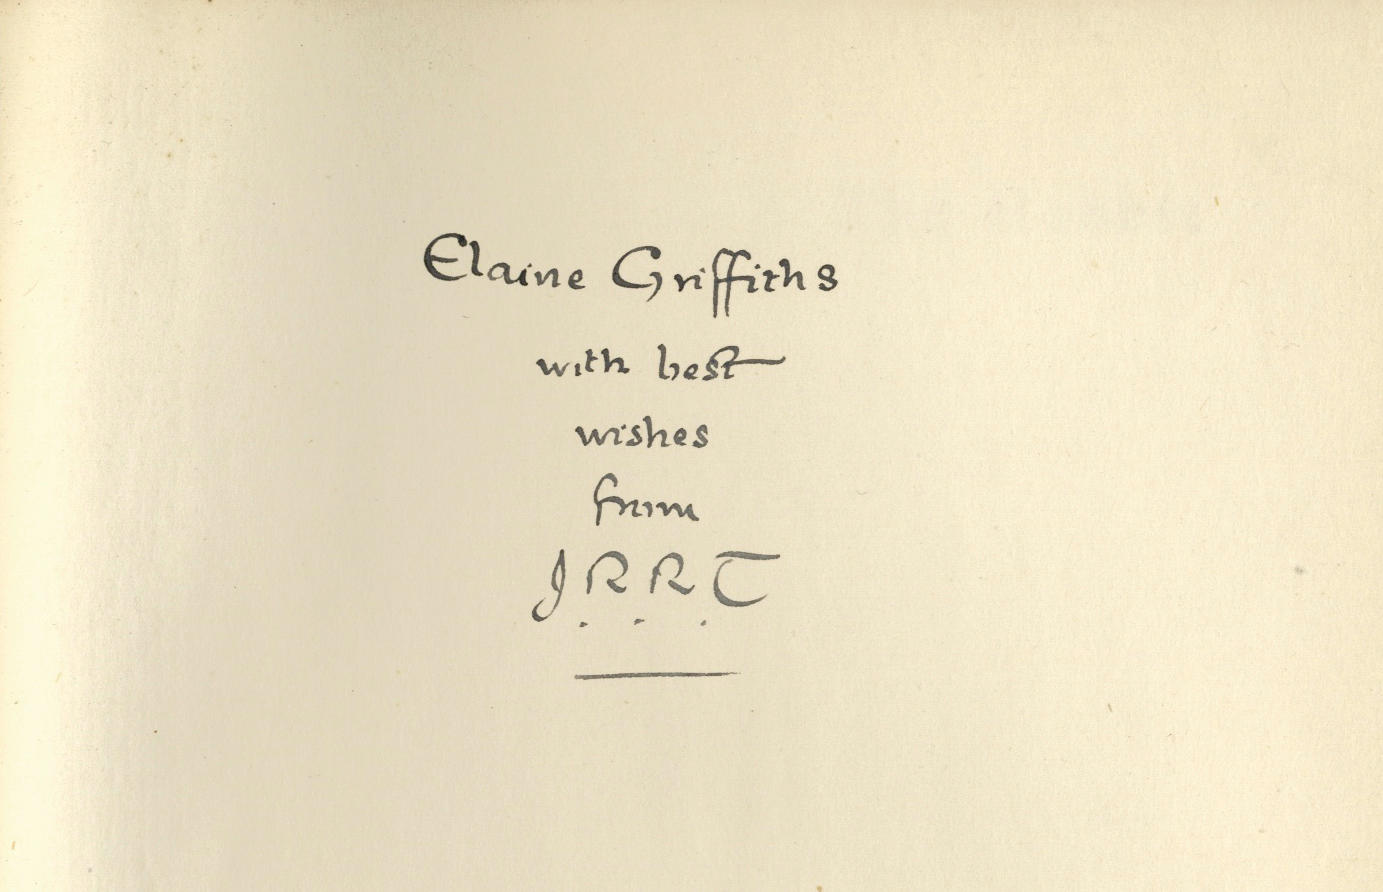 Elaine Griffiths
with best
wishes
from
J.R.R.T